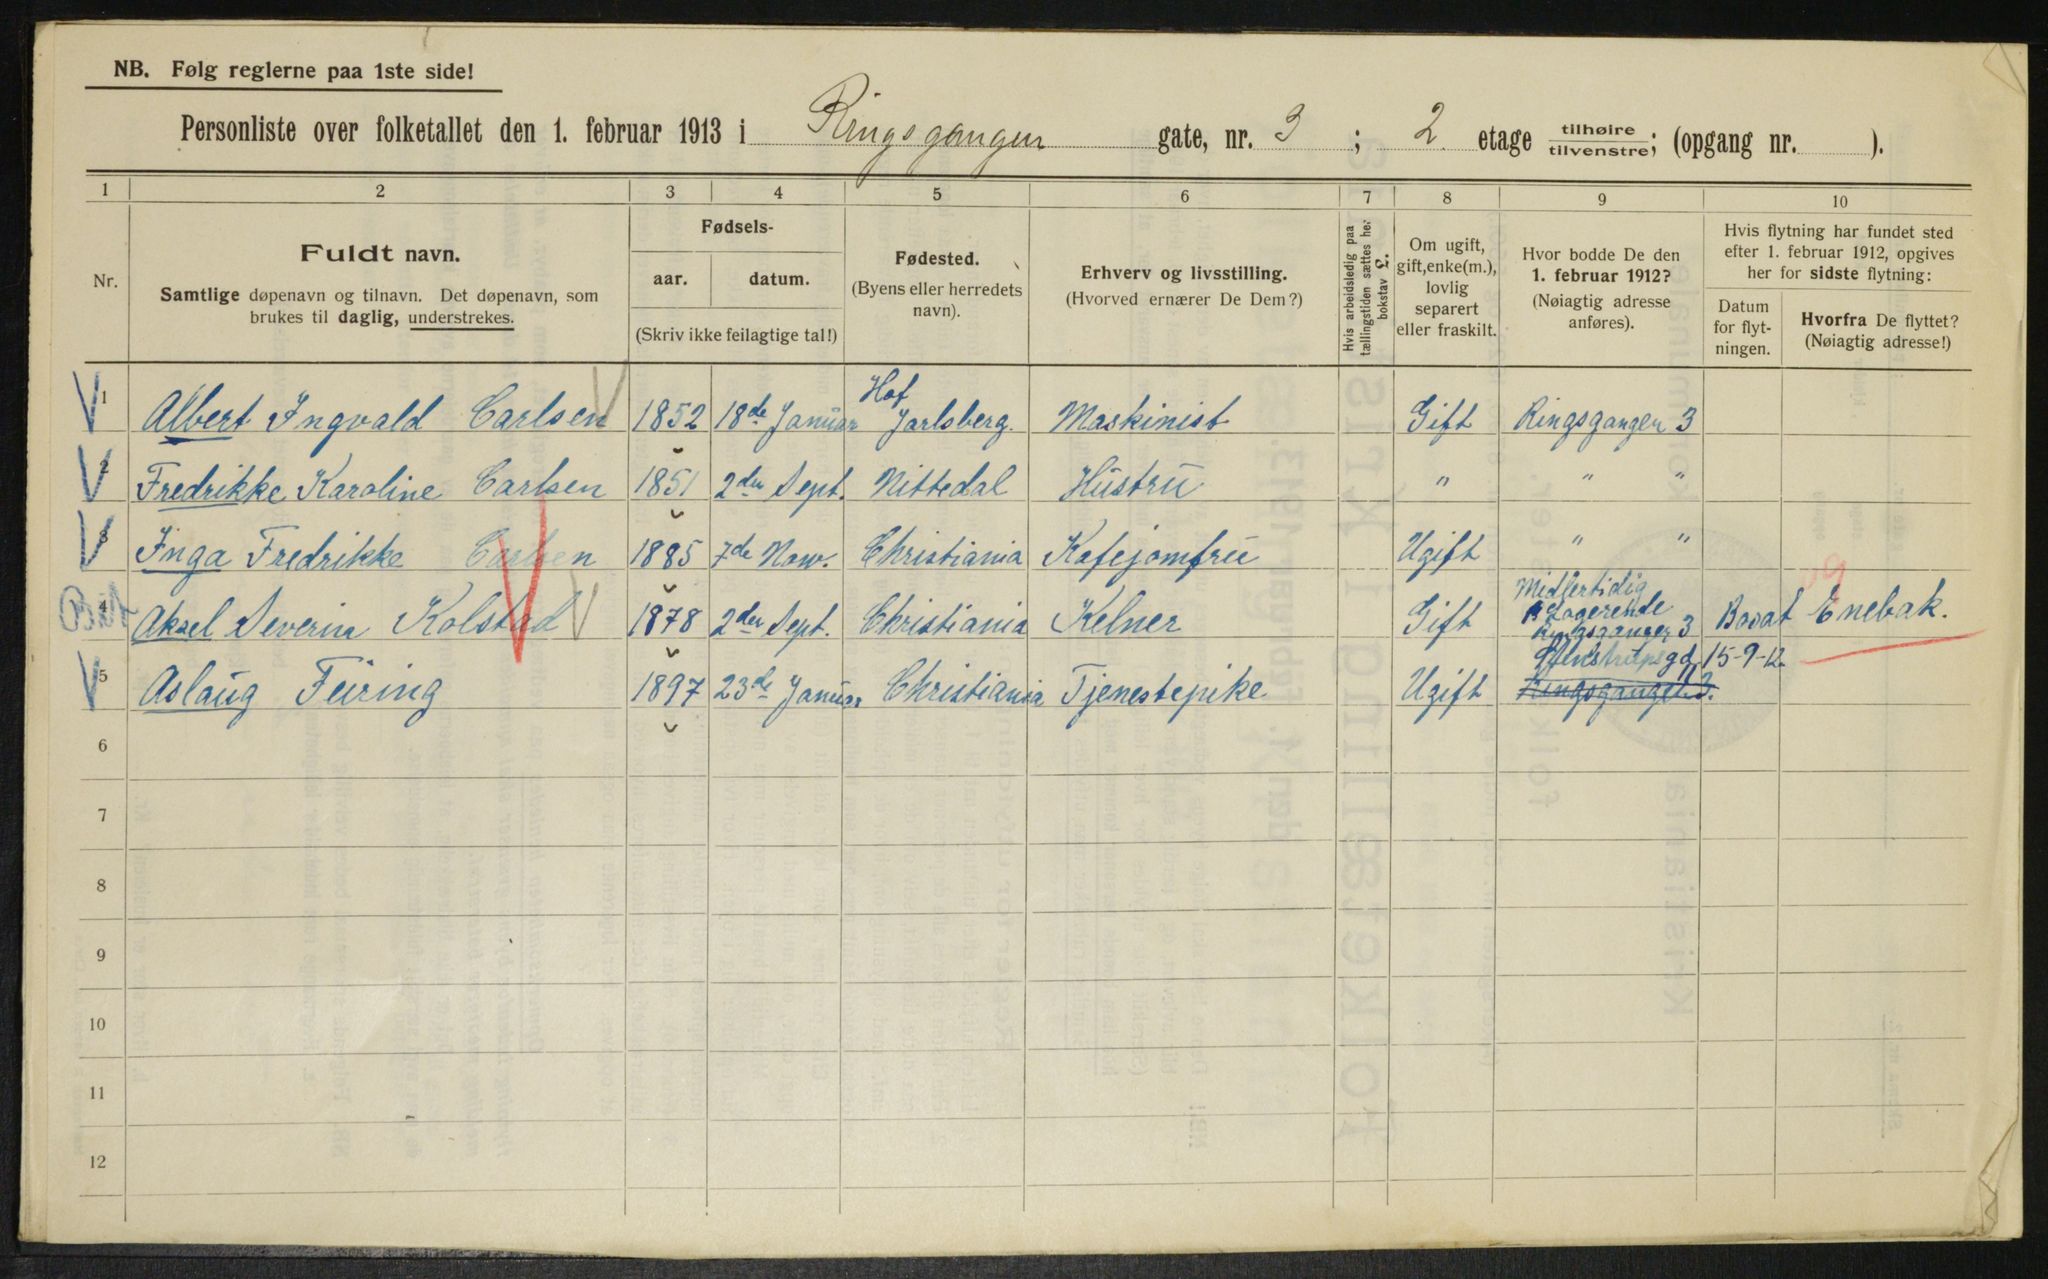 NB. Følg reglerne paa 1ste side!
Personliste over folketallet den 1. februar 1913 i Ringsgangen gate, nr. 3 ; 2 etage tilhøire tilvenstre; (opgang nr. ).
1 2 3 4 5 6 7 8 9 10
Nr.
Fuldt navn.
Samtlige døpenavn og tilnavn. Det døpenavn, som
brukes til daglig, understrekes.
Fødsels-
aar. datum.
(Skriv ikke feilagtige tal!)
Fødested.
(Byens eller herredets
navn).
Erhverv og livsstilling.
(Hvorved ernærer De Dem?)
Hvis arbeidsledig paa
tællingstiden sættes her
bokstav £.
Om ugift,
gift, enke(m.),
lovlig
separert
eller fraskilt.
Hvor bodde De den
1. februar 1912?
(Nøiagtig adresse
anføres).
Hvis flytning har fundet sted
efter 1. februar 1912, opgives
her for sidste flytning:
Datum
for flyt-
ningen.
Hvorfra De flyttet?
(Nøiagtig adresse!)
Hof
1 Albert Ingvald Carlsen 1852 18de Januar Jarlsberg. Maskinist Gift Ringsgangen 3
2 Fredrikke Karoline Carlsen 1851 2den Sept. Nittedal Hustru " " "
3 Inga Fredrikke Carlsen 1885 7de Nov. Christiania Kafejomfru Ugift " "
Midlertidig
Logerende
4 Aksel Severin Kolstad 1878 2den Sept. Christiania Kelner Gift Ringsgangen 3 Bosat Enebak.
15-9-12
5 Aslaug Feiring 1897 23de Januar Christiania Tjenestepike Ugift Ringsgangen 3.
6
7
8
9
10
11
12